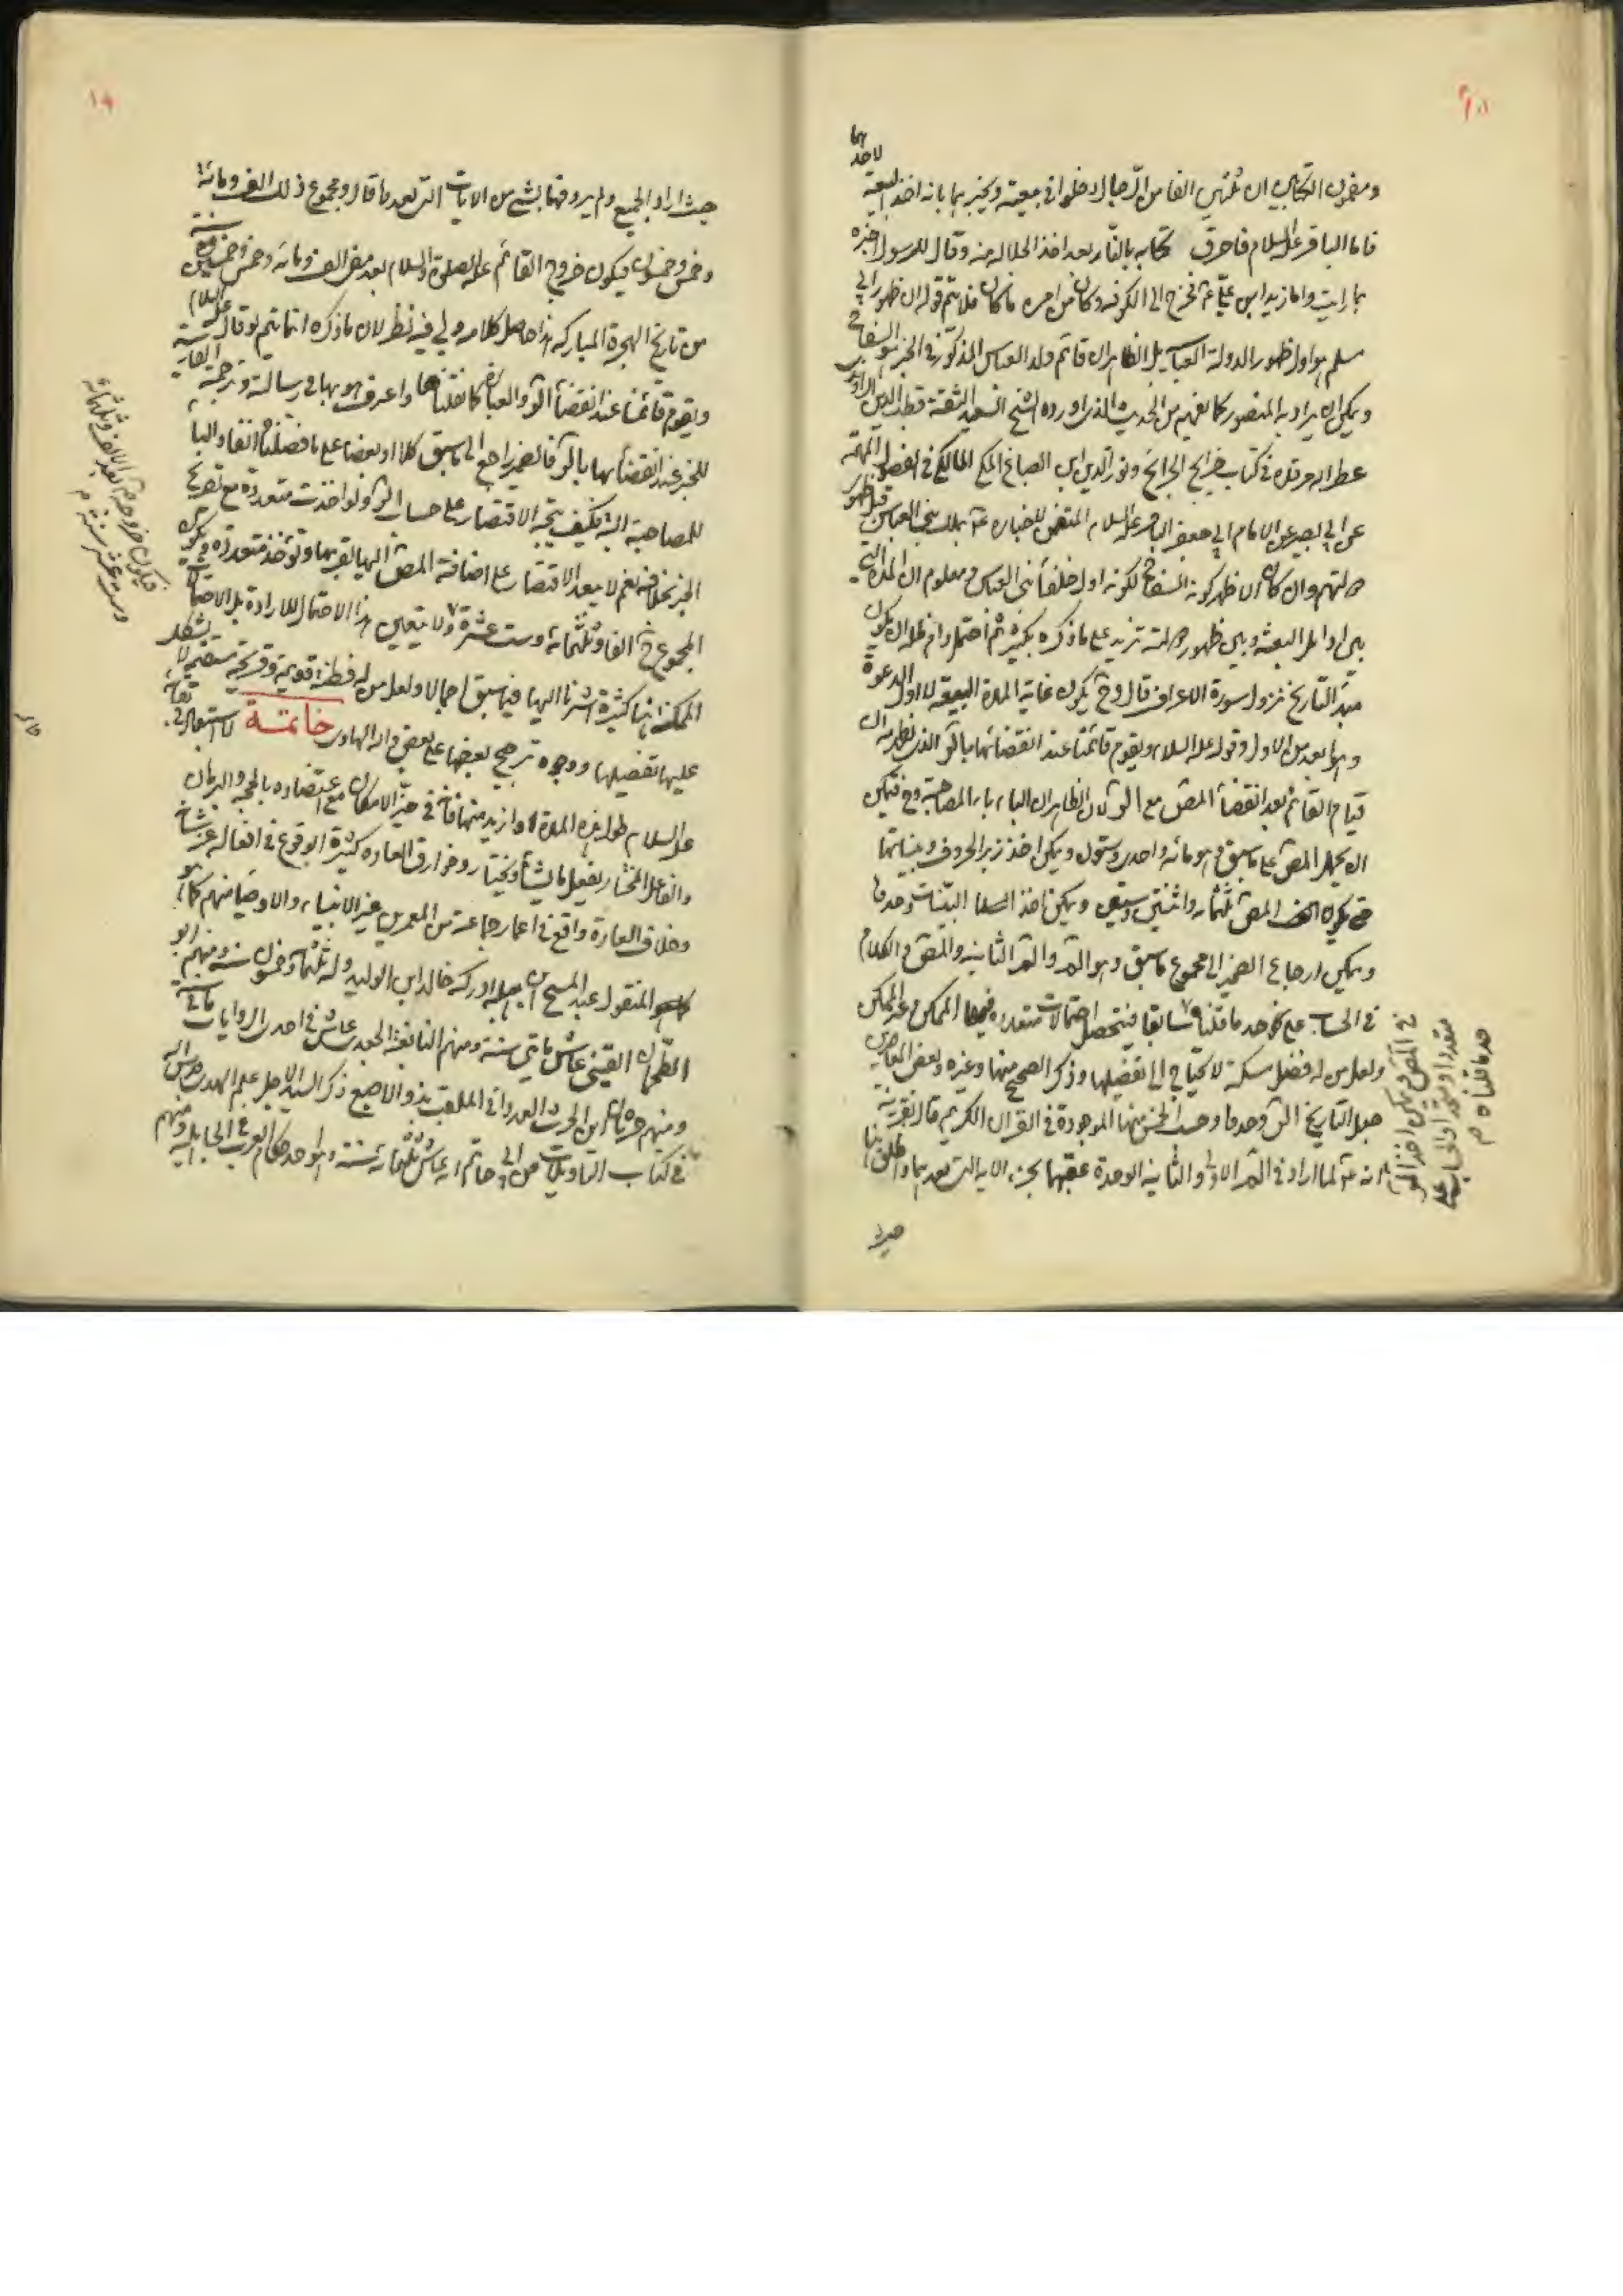 ومضمون الكتابين ان ثلثين الفا من الرجال دخلوا في بيعته ويخبرهما بانه اخذ البيعة لاحدهما
فاما الباقر عليه السلام فاحرق كتابه بالنار بعد اخذ الحلاله منه وقال للرسول اخبره
بما رايت واما زيد ابن علي فخرج الى الكوفه وكان من امره ما كان فلا يتم قوله ان ظهور ابي
مسلم هو اول ظهور الدولة العباسيه بل الظاهر ان قائم ولد العباس المذكور في الخبر هو السفاح
ويمكن ان يراد به المنصور كما يفهم من الحديث الذي اورده الشيخ السعيد الثقة قطب الدين الراوندي
عطر الله مرقده في كتاب خرايج الجرائح ونور الدين ابن الصباغ المكي المالكي في الفصول المهمة
عن ابي بصير عن الامام ابي جعفر الباقر عليه السلام المتضمن للاخبار بملك بني العباس قبل ظهور
دولتهم وان كان الاظهر كونه السفاح لكونه اول خلفاء بني العباس ومعلوم ان المدة التي
بين اوائل البعثة وبين ظهور دولته تزيد على ما ذكره بكثير ثم احتمل دام ظله ان يكون
مبدء التاريخ نزول سورة الاعراف قال وح يكون غاية المدة البيعة لا اول الدعوة
وهو ابعد من الاول وقوله عليه السلام ويقوم قائمنا عند انقضائها بالر الذي يظهر منه ان
قيام القائم بعد انقضاء المص مع الر لان الظاهر ان الباء باء المصاحبة وح فيمكن
ان يحمل المص على ما سبق وهو مائه واحدى وستون ويمكن اخذ زبر الحروف وبيناتها
حتى يكون المص ثلثمائة واثنتين وستين ويمكن اخذ البينات وحدها
ويمكن ارجاع الضمير الى مجموع ما سبق وهو الم والم الثانيه والمص والكلام
في الحساب على حد ما قلناه سابقا فيتحصل احتمالات متعدده فيها الممكن وغير الممكن
ولعل من له فضل مسكة لا يحتاج الى تفصيلها وذكر الصحيح منها وغيره وبعض المعاصرين
جعل التاريخ الر وحدها وحسب الخمس منها الموجودة في القران الكريم قال بقرينة
انه لما اراد في الم الاولى والثانيه الوحدة عقبها بجزء الايه التي بعدهما واطلق هنا
في المص ويمكن اخذ الر
متعددا ومتحدا والحساب على
حد ما قلناه م
حيث
حيث اراد الجميع ولم يردفها بشيء من الايات التي بعدها قال ومجموع ذلك الف ومائة
وخمس وخمسون فيكون خروج القائم عليه الصلوة والسلام بعد مضي الف ومائة وخمس وخمسين سنة
من تاريخ الهجرة المباركة هذا حاصل كلامه ولي فيه نظر لان ما ذكره انما يتم لو قال عليه السلام
ويقوم قائمنا عند انقضاء الر والعبارة كما نقلناها واعترف هو بها في رسالته وترجمته الفارسية
للخبر عند انقضائها بالر فالضمير راجع الى ما سبق كلا او بعضا على ما فصلناه انفا والباء
للمصاحبة البتة فكيف يتجه الاقتصار على حساب الر ولو اخذت متعددة مع تصريح
الخبر بخلافه نعم لا يبعد الاقتصار على اضافة المص اليها لقربها وتؤخذ متعددة فيكون
المجموع ح الفا وثلثمائة وست عشرة ولا يتعين هذا الاحتمال للارادة بل الاحتمالات
الممكنة هنا كثيرة اشرنا اليها فيما سبق اجمالا ولعل من له فطنة قويمة وقريحة مستقيمة لا يشكل
عليها تفصيلها ووجوه ترجيح بعضها على بعض والله الهادى خاتمة لا استبعاد في بقائه
عليه السلام طول هذه المدة وازيد منها فانه في حيز الامكان مع اعتضاده بالحجة والبرهان
والفاعل المختار يفعل ما يشاء ويختار وخوارق العاده كثيرة الوقوع في افعاله عز شانه
وخلاف العادة واقع في اعمار جماعة من المعمرين غير الانبياء والاوصياء منهم كما هو
المنقول عبد المسيح ابن بقيله ادركه خالد ابن الوليد وله ثلثمائة وخمسون سنة ومنهم ابو
الطمحان القيني عاش مائتي سنة ومنهم النابغة الجعدي عاش في احدى الروايات مائتي سنة
ومنهم حرثان ابن الحرث العدواني الملقب بذو الاصبع ذكر السيد الاجل علم الهدى قدس الله
في كتاب التاويلات عن ابي حاتم انه عاش ثلثمائة سنة وهو احد حكام العرب في الجاهلية ومنهم
فيكون خروجه بعد الالف وثلثمائة
وست عشر سنة م